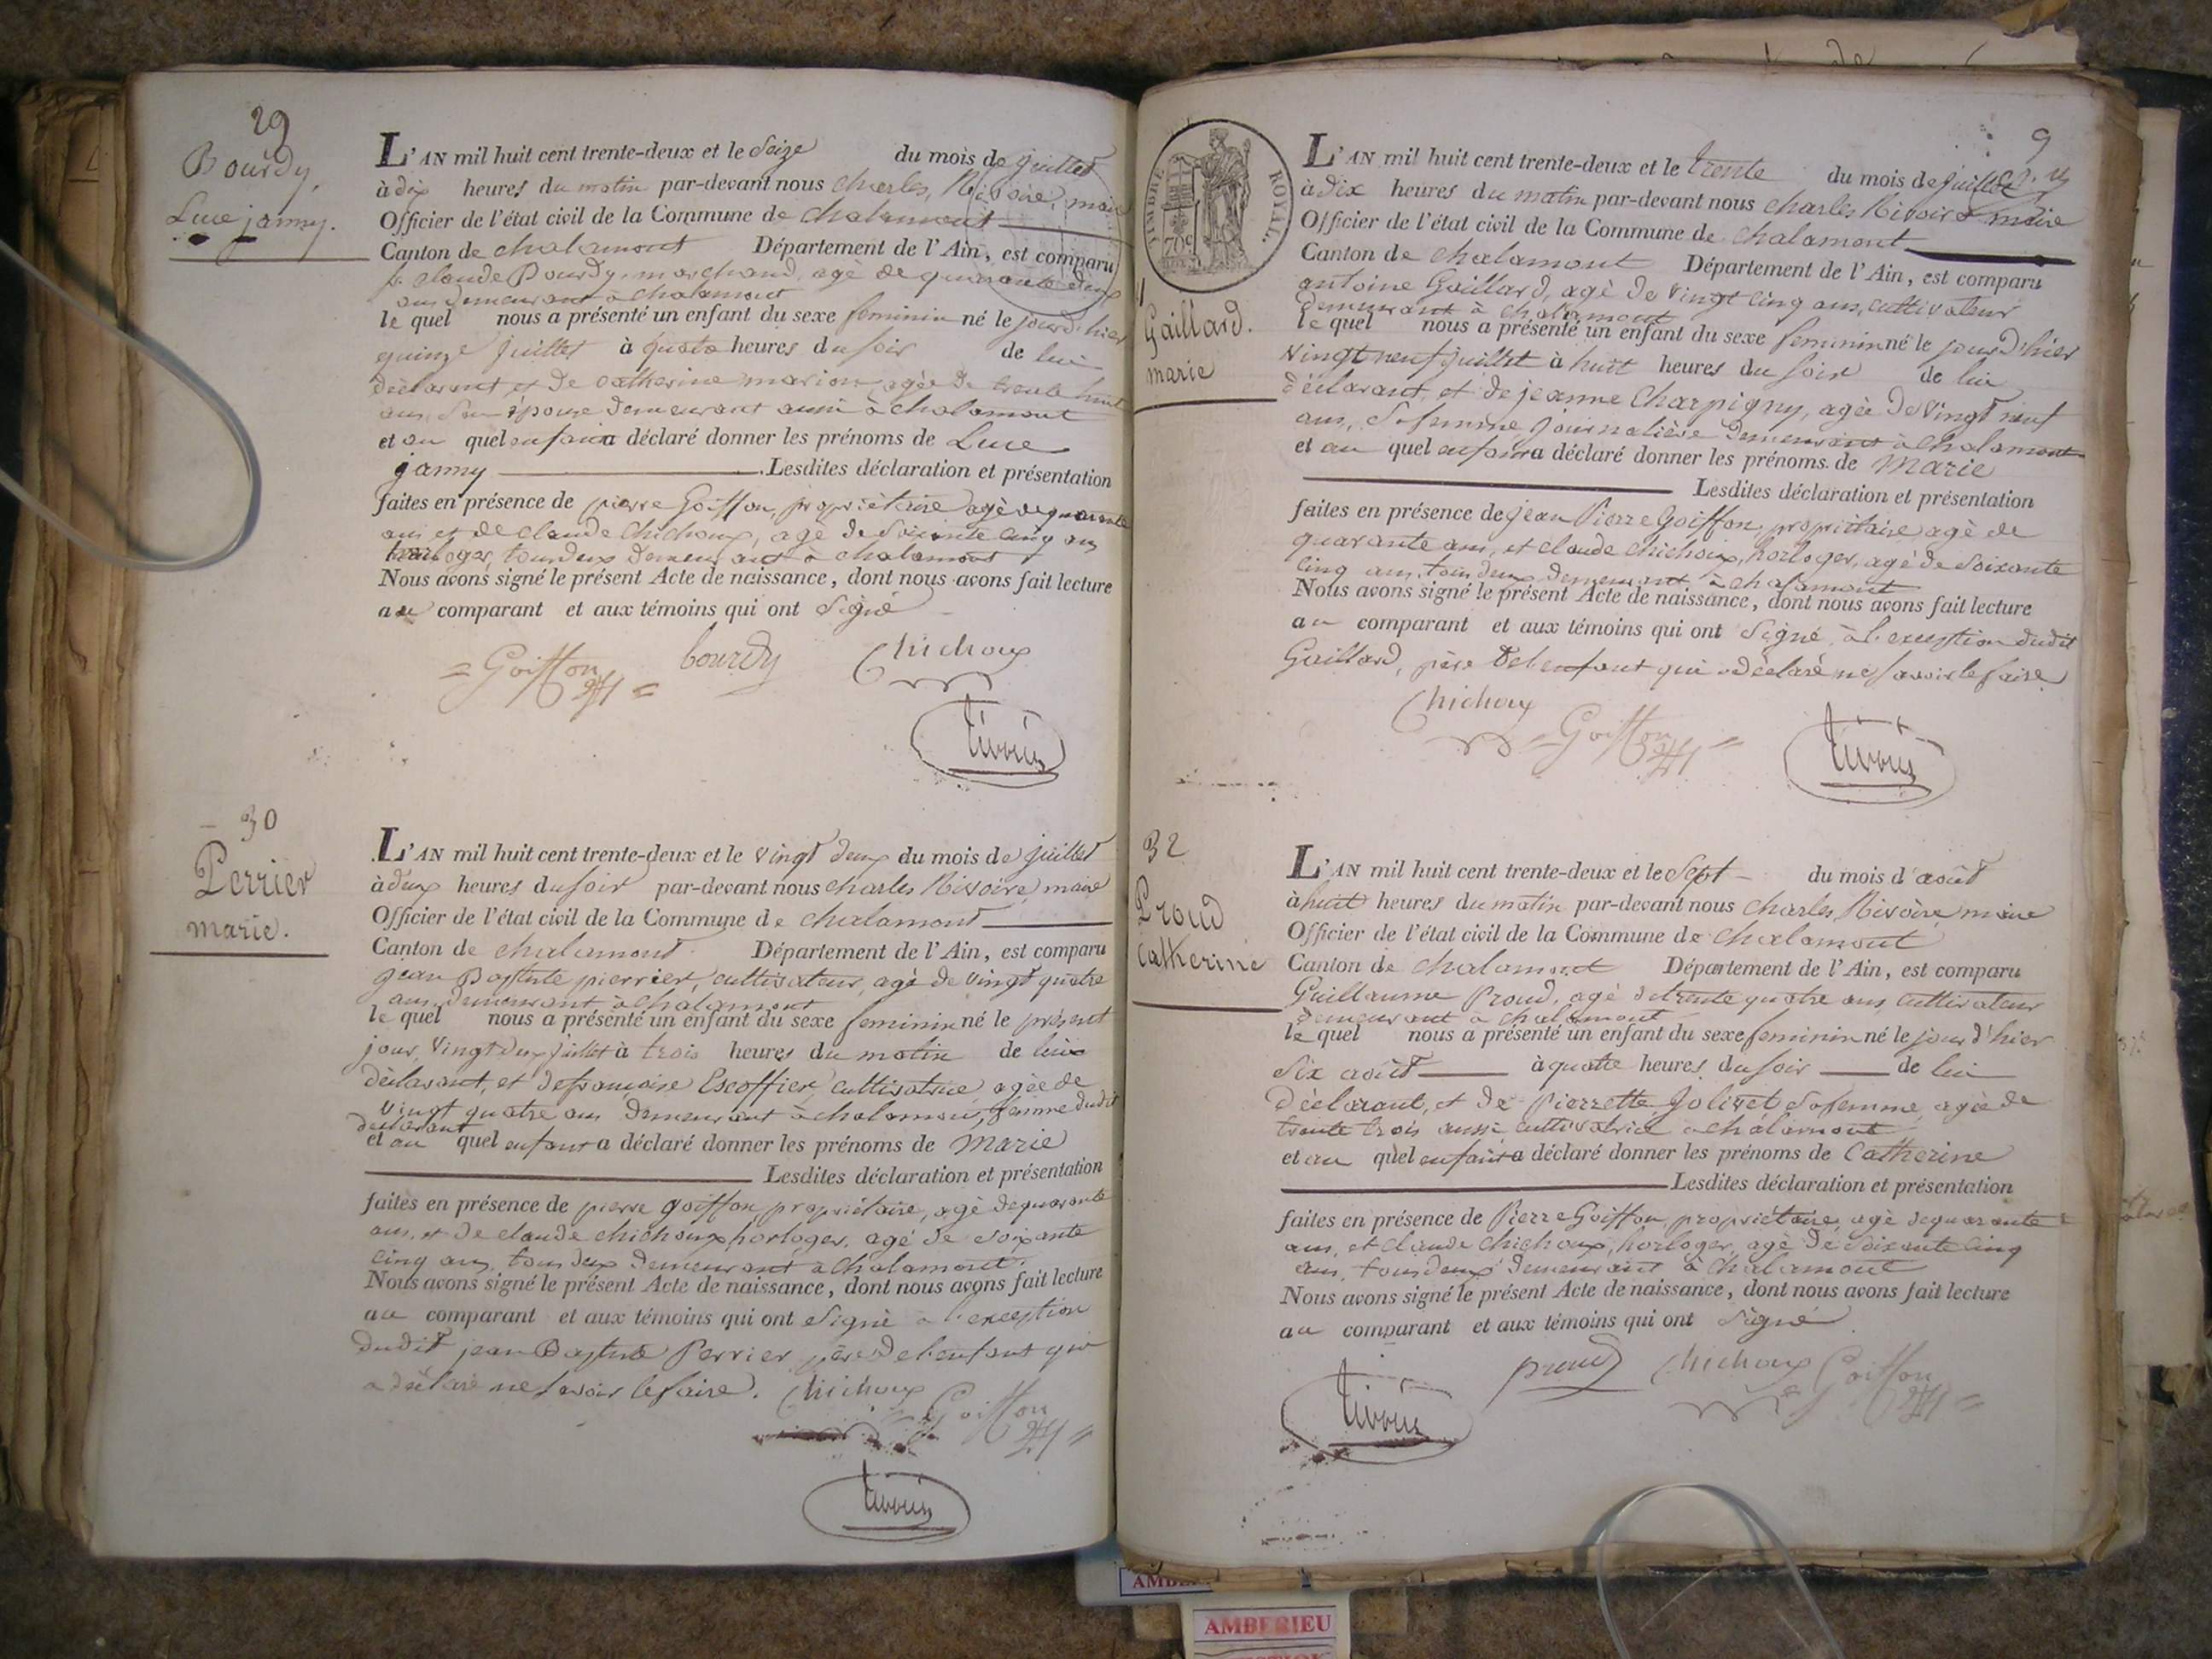 29
Bourdy,
Luce janny.
L'AN mil huit cent trente-deux et le Seize du mois de juillet
à dix heures du matin par-devant nous Charles, Rivoire, maire
Officier de l'état civil de la Commune de chalamont
Canton de chalamont Département de l'Ain, est comparu
claude Bourdy, marchand, agè de quarante deux
ans demeurant à chalamont
le quel nous a présenté un enfant du sexe feminin né le jourd'hier
quinze juillet à quatre heures du soir de lui
déclarant et de catherine marion, agée de trente huit
ans, son épouse demeurant aussi à chalamont
et au quel enfant a déclaré donner les prénoms de Luce
janny Lesdites déclaration et présentation
faites en présence de pierre Goiffon, propriètaire agè de quarante
ans et de claude Chichoux, agè de soixante cinq ans
horloger, tous deux demeurant à chalamont
Nous avons signé le présent Acte de naissance, dont nous avons fait lecture
au comparant et aux témoins qui ont Signé
Goiffon bourdy Chichoux
Rivoire
30
Perrier
marie.
L'AN mil huit cent trente-deux et le vingt deux du mois de juillet
à deux heures du soir par-devant nous Charles Rivoire, maire
Officier de l'état civil de la Commune de chalamont
Canton de chalamont Département de l'Ain, est comparu
jean Baptiste pierrier, cultivateur, agé de vingt quatre
ans demeurant à chalamont
le quel nous a présenté un enfant du sexe feminin né le présent
jour, vingt deux juillet à trois heures du matin de lui
déclarant, et de françoise Escoffier, cultivatrice, agée de
vingt quatre ans demeurant à chalamont, femme dudit
declarant
et au quel enfant a déclaré donner les prénoms de Marie
Lesdites déclaration et présentation
faites en présence de pierre goiffon propriètaire, agè de quarante
ans, et de claude chichoux, horloger, agé de soixante
cinq ans, tous deux demeurant à chalamont.
Nous avons signé le présent Acte de naissance, dont nous avons fait lecture
au comparant et aux témoins qui ont Signé à l'exception
dudit jean Baptiste Perrier, père de l'enfant qui
a déclaré ne savoir le faire. Chichoux
Goiffon
Rivoire
9
TIMBRE ROYAL.
70c
L'AN mil huit cent trente-deux et le trente du mois de juillet
à dix heures du matin par-devant nous Charles Rivoire maire
Officier de l'état civil de la Commune de chalamont
Canton de chalamont Département de l'Ain, est comparu
antoine Gaillard, agè de vingt cinq ans, cultivateur
demeurant à chalamont
Gaillard.
marie
le quel nous a présenté un enfant du sexe feminin né le jour d'hier
vingt neuf juillet à huit heures du soir de lui
déclarant, et de jeanne Charpigny, agèe de vingt neuf
ans, sa femme journalière demeurant à chalamont
et au quel enfant a déclaré donner les prénoms de Marie
Lesdites déclaration et présentation
faites en présence de jean Pierre Goiffon, propriétaire agè de
quarante ans, et claude chichoux, horloger, agé de soixante
cinq ans, tous deux demeurant à chalamont
Nous avons signé le présent Acte de naissance, dont nous avons fait lecture
au comparant et aux témoins qui ont Signé à l'exception dudit
Gaillard, père de l'enfant qui a déclaré ne savoir le faire
Chichoux
Goiffon
Rivoire
32
Proud
Catherine
L'AN mil huit cent trente-deux et le Sept du mois d'août
à huit heures du matin par-devant nous Charles, Rivoire maire
Officier de l'état civil de la Commune de chalamont
Canton de chalamont Département de l'Ain, est comparu
Guillaume Proud, agé de trente quatre ans, cultivateur
demeurant à chalamont
le quel nous a présenté un enfant du sexe feminin né le jour d'hier
Six août à quatre heures du soir de lui
déclarant, et de Pierrette Jolivet sa femme, agée de
trente trois aussi cultivatrice a chalamont
et au quel enfant a déclaré donner les prénoms de Catherine
Lesdites déclaration et présentation
faites en présence de Pierre Goiffon, propriétaire, agè de quarante
ans, et claude Chichoux, horloger, agè de soixante cinq
ans, tous deux demeurant à chalamont
Nous avons signé le présent Acte de naissance, dont nous avons fait lecture
au comparant et aux témoins qui ont Signé
proud Chichoux Goiffon
Rivoire
AMBERIEU